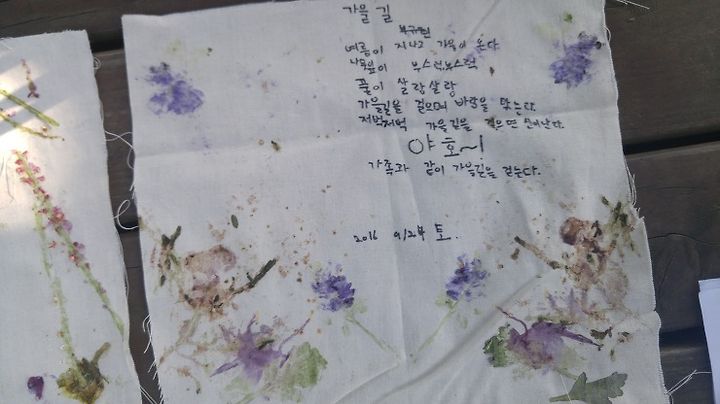 가을 길
여름이 지나고 가을이 온다
나뭇잎이 부스럭부스럭
꽃이 살랑살랑
가을길을 걸으며 바람을 맞는다.
저벅저벅 가을길을 걸으면 신이난다.
야호~!
가족과 같이 가을길을 걷는다.
2016 9/24 토.